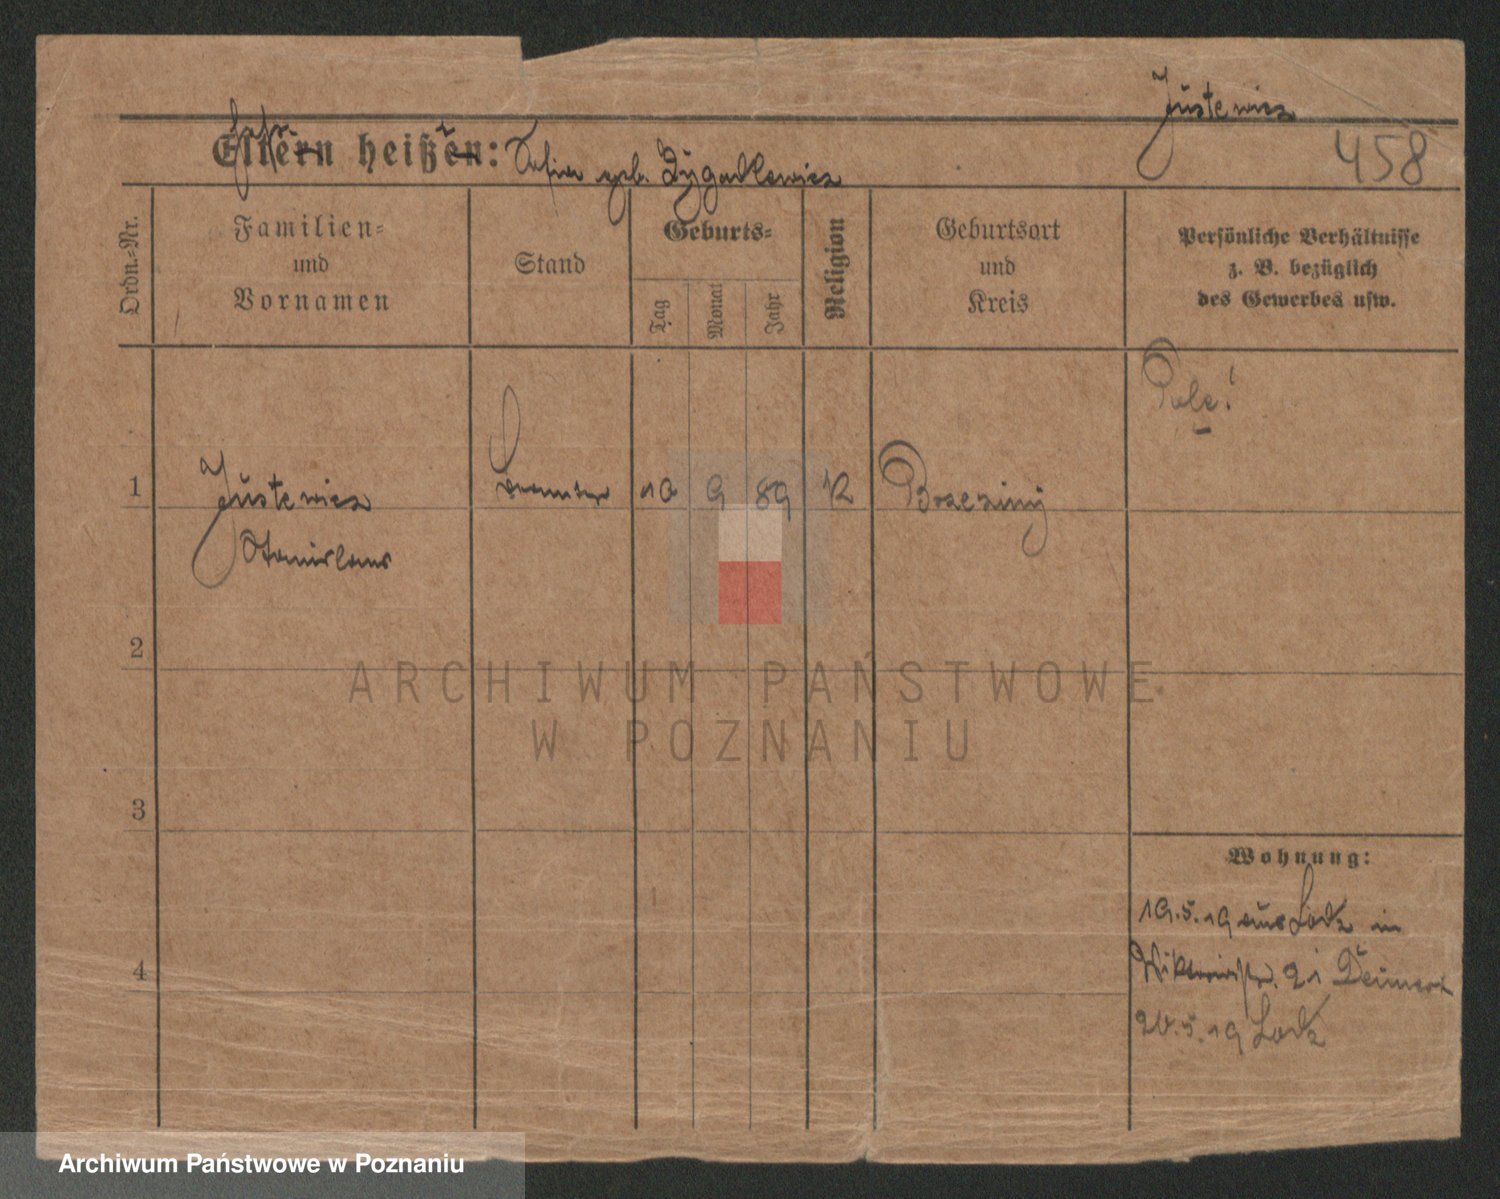 Justewicz
458
Eltern heißen: Sofia geb. Zygadlewicz
Ordn.-Nr.
Familien-
und
Vornamen
Stand
Geburts-
Tag
Monat
Jahr
Religion
Geburtsort
und
Kreis
Persönliche Verhältnisse
z. B. bezüglich
des Gewerbes usw.
Pole!
1
Justewicz
10
9
89
K
Brzeziny
Stanislaus
2
ARCHIWUM PAŃSTWOWE
W POZNANIU
3
Wohnung:
19.5.19 aus Lodz in
4
21
5.19 Lodz
Archiwum Państwowe w Poznaniu